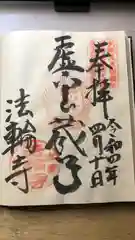 奉拝
令和四年
四月十日
虚空蔵尊
法輪寺